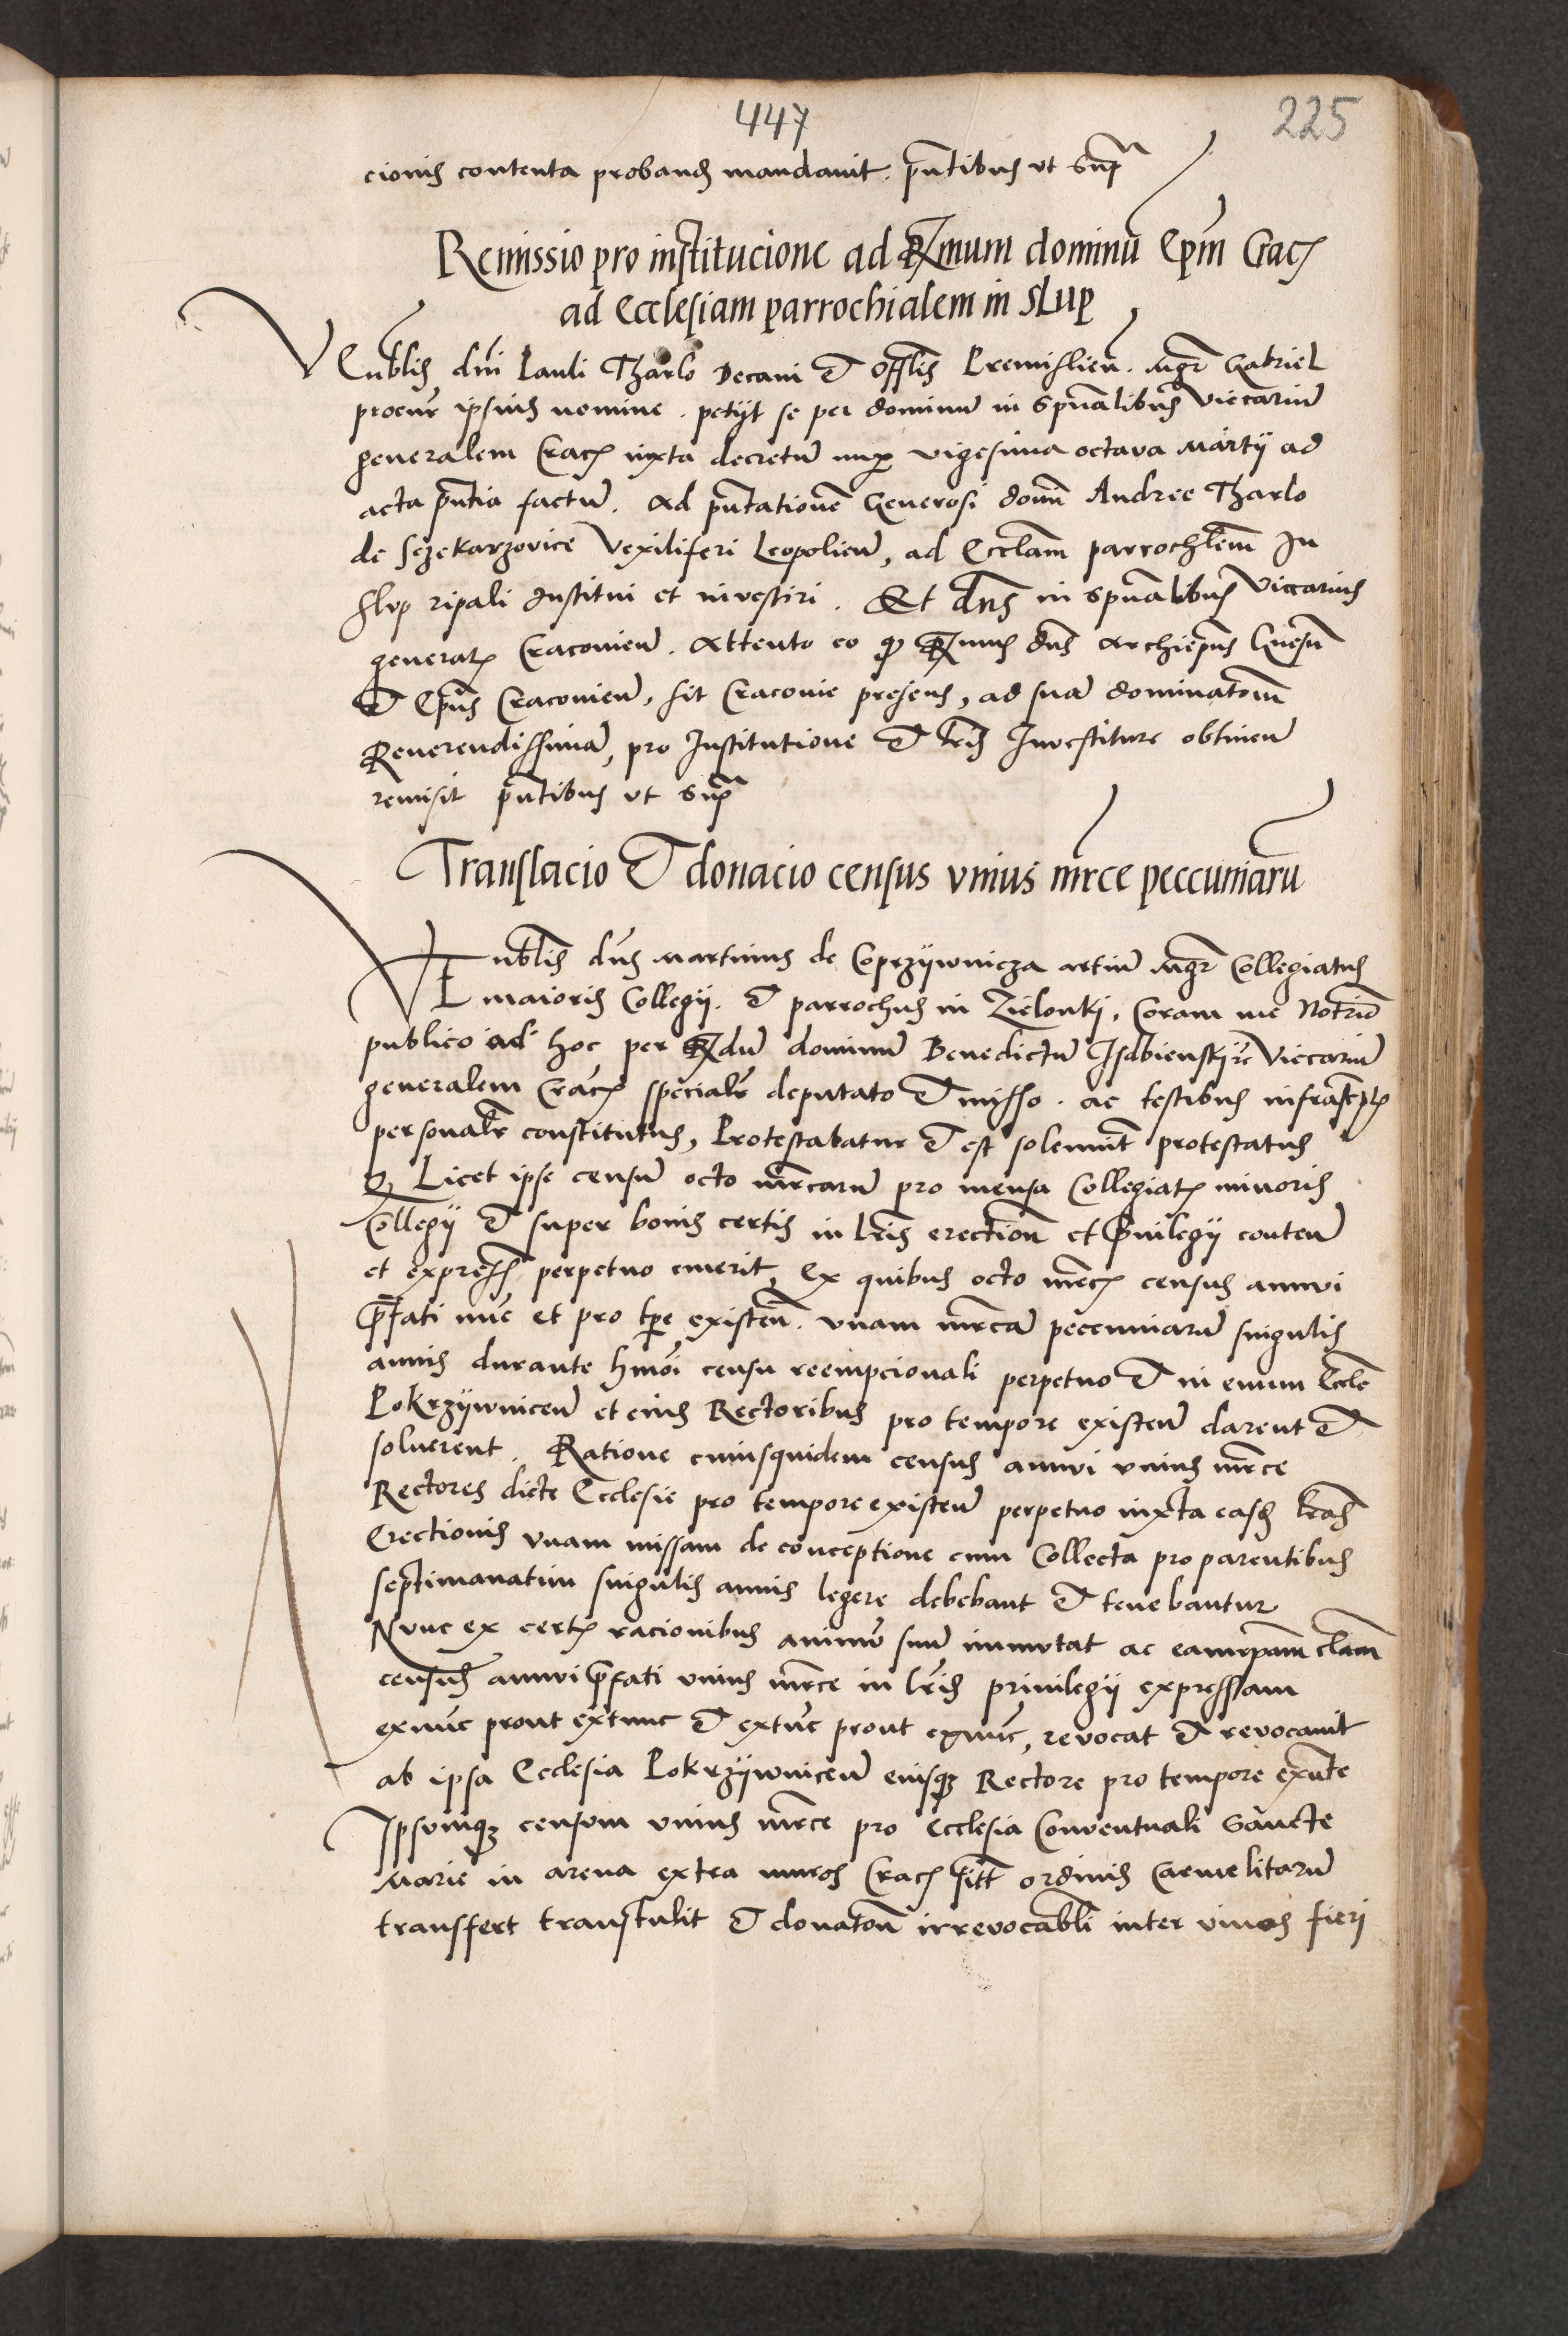 447
225
cionis contenta proband mandavit. pñtibus vt supª
Remissio pro institucione ad Rxmum dominũ Epm̃ Crac
ad Ecclesiam parrochialem in Slup
Veñblis dñi Pauli Tharlo Decani et Offlis Premislień. Mgr̃ Gabriel
procur̃ ipsius nomine. petyt se per dominũ in Spũalibus Viccariũ
generalem Crac iuxta decretũ nup vigesima octava Martij ad
acta pñtia factũ. Ad pñtationẽ Generosi domĩ Andree Tharlo
de Sczekarzovice Vexiliferi Leopolień, ad Ecclam parrochlem̃ In
Slup ripali Institui et investiri. Et dñs in Spũalibus Viccarius
general Cracovień. Attento eo qp Rxmus dñs Archiepũs Gnesń
et Epũs Cracovień, sit Cracovie presens, ad suã dominatom̃
Reverendissimã, pro Institutione et lr̃is Investiture obtineń
remisit pñtibus vt supª
Translacio et donacio census vnius mrce peccuniarũ
Veñblis dñs Martinus de Coprzÿwnicza artiũ Mgr̃ Collegiatus
maioris Collegij. et parrochus in Zielonki, Coram me Notrio
publico ad hoc per Rxdũ dominũ Benedictũ Isdbienskire Viccariũ
generalem Crac specialr̃ deputato et misso. ac testibus infrascptis
personalr̃ constitutus, Protestabatur et est solemnit̃ protestatus
q Licet ipse censũ octo mrcarũ pro mensa Collegiat minoris
Collegij et super bonis certis in lr̃is erectioñ et Privilegij conteń
et express perpetuo emerit, Ex quibus octo mrc census annvi
p̃fati nũc et pro tp̃e existeń. vnam mrcã peccuniarũ singulis
annis durante hmõi censu reempcionali perpetuo et in evum Eccle
Pokrzÿwniceń et eius Rectoribus pro tempore existeń darent et
soluerent. Ratione cuiusquidem census annvi vnius mrce
Rectores dicte Ecclesie pro tempore existeń perpetuo iuxta easd lr̃as
Erectionis vnam missam de conceptione cum Collecta pro parentibus
septimanatim singulis annis legere debebant et tenebantur
Nvnc ex cert racionibus animũ suũ immvtat ac eam clam
census annvi p̃fati vnius mrce in lr̃is privilegij expressam
exnũc prout extunc et extũc prout exnũc, revocat et revocavit
ab ipsa Ecclesia Pokrzÿwniceń eiusqz Rectore pro tempore exñte
Ipsvmqz censvm vnius mrce pro Ecclesia Conventuali Sancte
Marie in arena extra muros Crac sitt ordinis Carmelitarũ
transfert transtulit et donatoñ irrevocabli inter vivos fieri